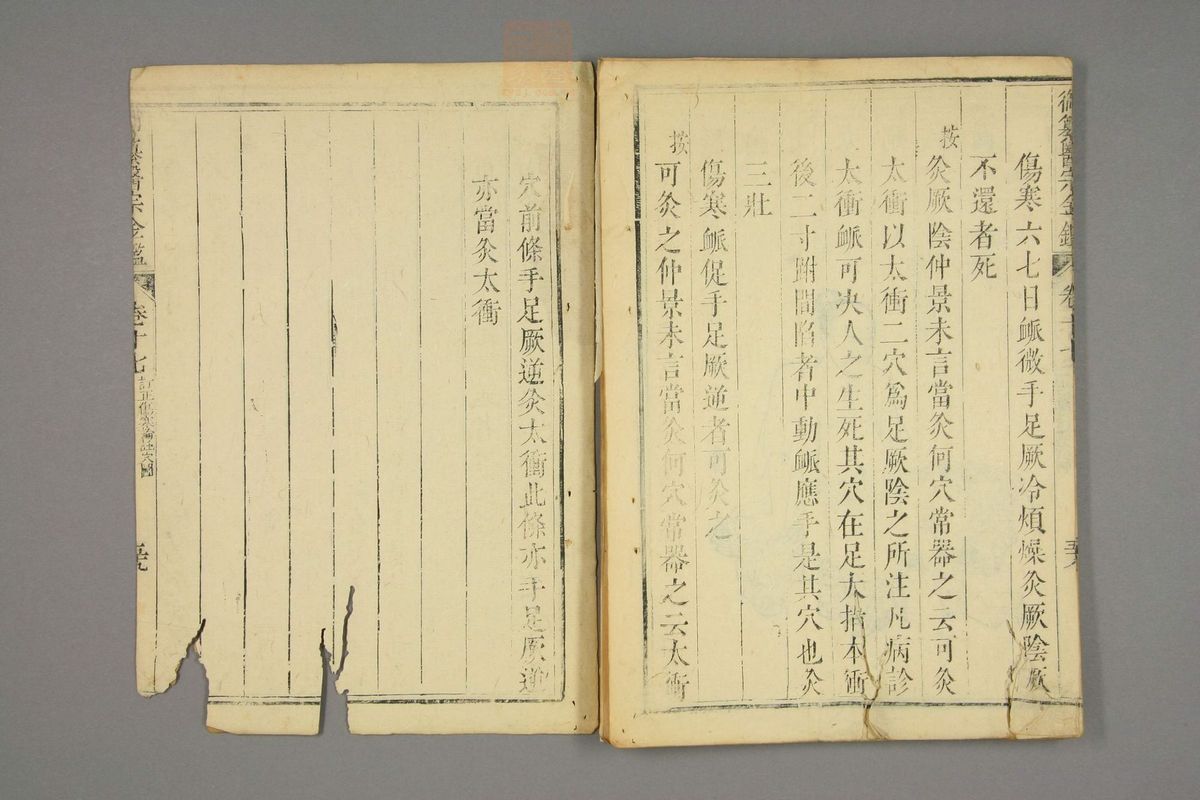 御纂醫宗金鑑 卷十七
傷寒六七日脈微手足厥冷煩燥灸厥陰厥
不還者死
按灸厥陰仲景未言當灸何穴常器之云可灸
太衝以太衝二穴爲足厥陰之所注凡病診
太衝脈可决人之生死其穴在足大指本節
後二寸跗間陷者中動脈應手是其穴也灸
三壯
傷寒脈促手足厥逆者可灸之
按可灸之仲景未言當灸何穴常器之云太衝
穴前條手足厥逆灸太衝此條亦手足厥逆
亦當灸太衝
纂醫宗金鑑 卷十七 訂正傷寒論註